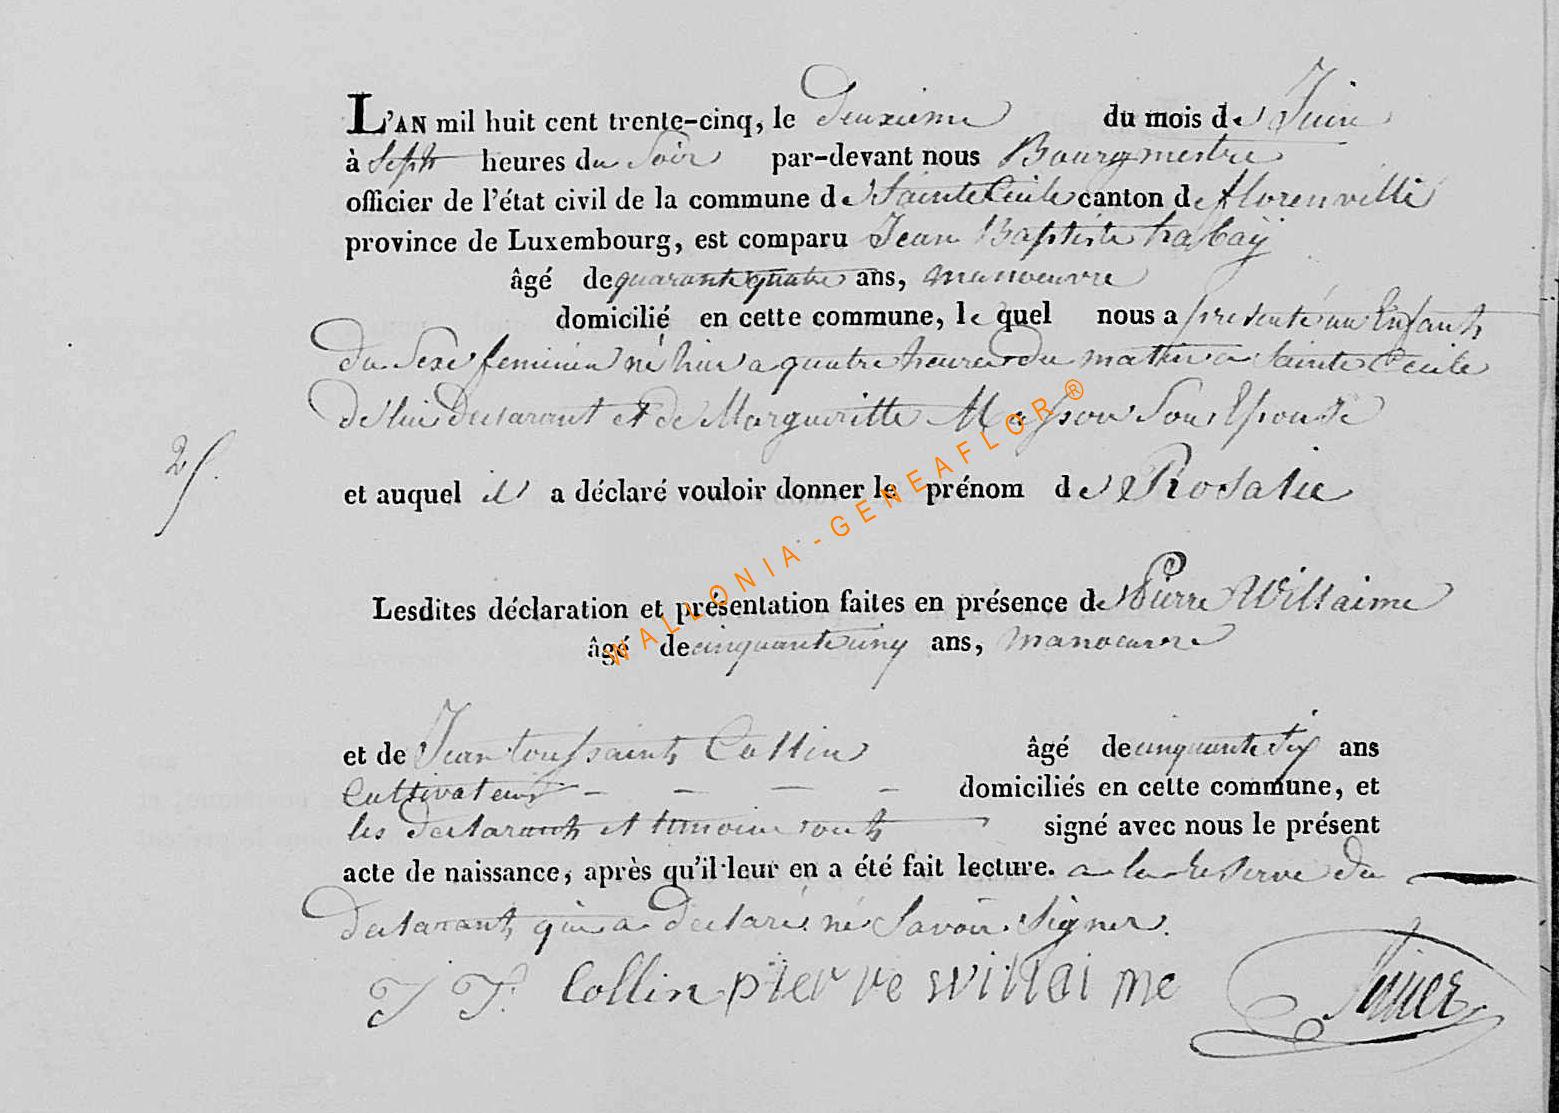 L'AN mil huit cent trente-cinq, le Deuxieme du mois de Juin
à Sept heures du Soir par-devant nous Bourgmestre
officier de l'état civil de la commune de Sainte Cecile canton de florenville
province de Luxembourg, est comparu Jean Baptiste habaÿ
âgé de quarante quatre ans, manoeuvre
domicilié en cette commune, le quel nous a presenté un Enfant
du Sexe feminin né hier a quatre heures du matin a Sainte Cecile
de lui declarant et de Margueritte Masson Son Epouse
25.
et auquel il a déclaré vouloir donner le prénom de Rosalie
Lesdites déclaration et présentation faites en présence de Pierre Willaime
âgé de cinquante cinq ans, manoeuvre
et de Jean toussaint Collin âgé de cinquante six ans
Cultivateur - - - - domiciliés en cette commune, et
les declarant et temoins ont signé avec nous le présent
acte de naissance, après qu'il leur en a été fait lecture. a la reserve du
declarant qui a declaré né Savoir Signer.
J T. Collin pierre willai me
WALLONIA-GENEAFLOR®